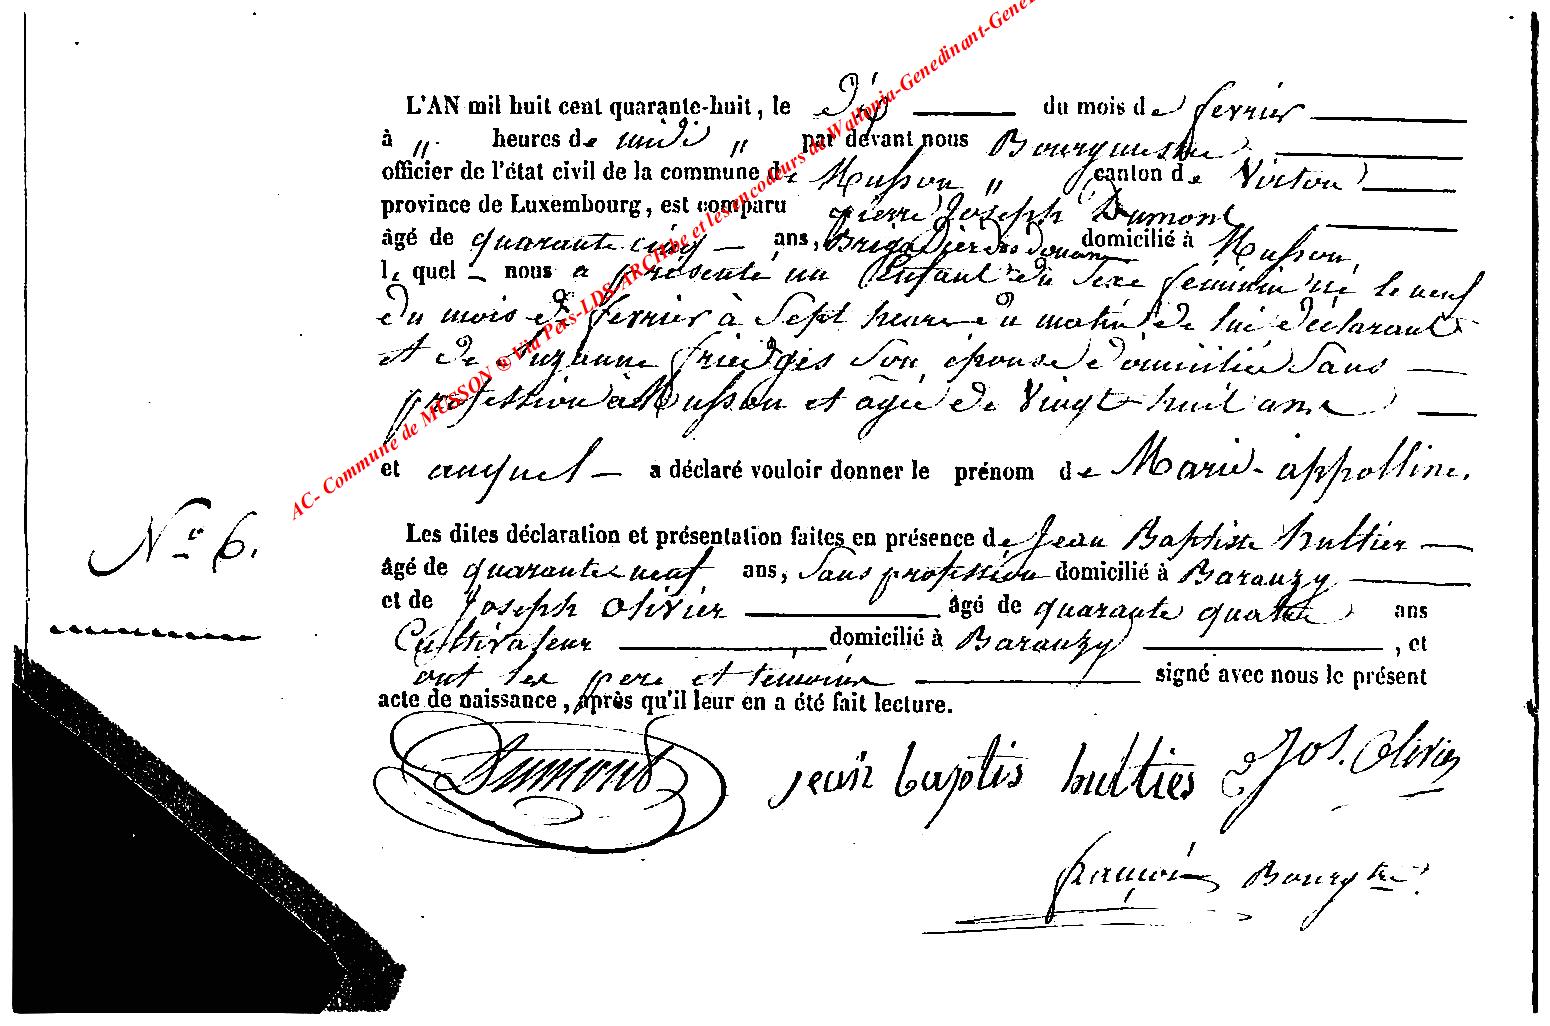 L'AN mil huit cent quarante-huit, le dix du mois de fevrier
à „ heures de midi „ par devant nous Bourgmestre
officier de l'état civil de la commune de Musson „ canton de Virton
province de Luxembourg, est comparu pierre Joseph Dumont
âgé de quarante cinq ans, Brigadier des Douanes domicilié à Musson,
le quel nous a présenté un Enfant du Sexe féminin né le neuf
du mois de fevrier à Sept heures du matin de lui déclarant
et de Suzanne friedges Son épouse domiciliée Sans
profession à Musson et agée de Vingt huit ans
et auquel a déclaré vouloir donner le prénom de Marie-appolline.
N° 6.
Les dites déclaration et présentation faites en présence de Jean Baptiste hultier
âgé de quarante neuf ans, Sans profession domicilié à Baranzy
et de Joseph Olivier âgé de quarante quatre ans
Cultivateur domicilié à Baranzy, et
ont les pere et témoins signé avec nous le présent
acte de naissance, après qu'il leur en a été fait lecture.
Dumont jean baptis hulties Jos. Olivier
françois Bourgtre.
AC- Commune de MUSSON © Via Pers-LDS-ARCH.be et les encodeurs de Wallonia-Genedinant-Gene